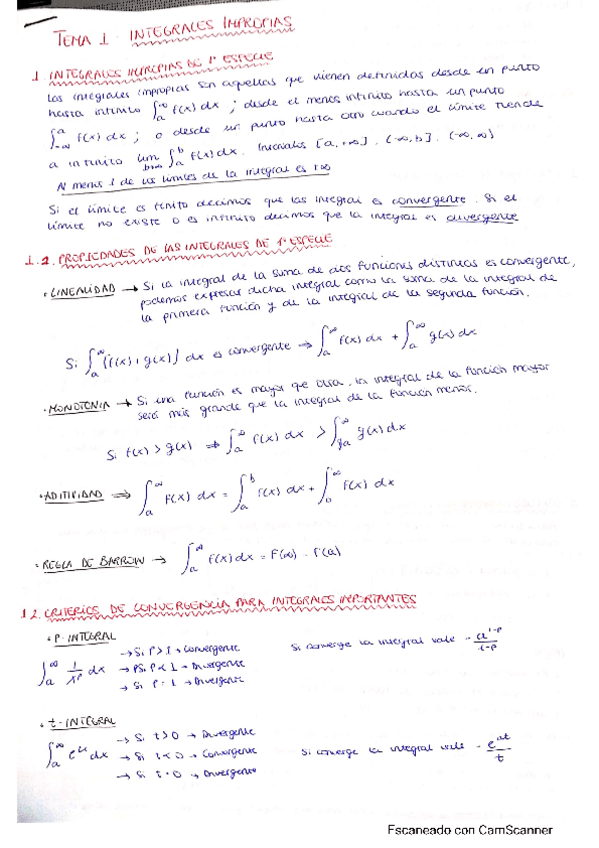 TEMA 1 INTEGRALES IMPROPIAS
1. INTEGRALES IMPROPIAS DE 1ª ESPECIE
Las integrales impropias son aquellas que vienen definidas desde un punto
hasta infinito ∫_a^∞ f(x) dx ; desde el menos infinito hasta un punto
∫_{-∞}^a f(x) dx ; o desde un punto hasta otro cuando el límite tiende
a infinito lim_{b→∞} ∫_a^b f(x) dx. Intervalos [a, +∞] , (-∞, b] , (-∞, ∞)
Al menos 1 de los límites de la integral es ±∞
Si el límite es finito decimos que la integral es convergente. Si el
límite no existe o es infinito decimos que la integral es divergente
1.2. PROPIEDADES DE LAS INTEGRALES DE 1ª ESPECIE
· LINEALIDAD → Si la integral de la suma de dos funciones distintas es convergente,
podemos expresar dicha integral como la suma de la integral de
la primera función y de la integral de la segunda función.
Si ∫_a^∞ [f(x) + g(x)] dx es convergente → ∫_a^∞ f(x) dx + ∫_a^∞ g(x) dx
· MONOTONIA → Si una función es mayor que otra, la integral de la función mayor
será más grande que la integral de la función menor.
Si f(x) > g(x) ⇒ ∫_a^∞ f(x) dx > ∫_a^∞ g(x) dx
· ADITIVIDAD ⇒ ∫_a^∞ f(x) dx = ∫_a^b f(x) dx + ∫_a^∞ f(x) dx
· REGLA DE BARROW → ∫_a^∞ f(x) dx = F(∞) - F(a)
1.2. CRITERIOS DE CONVERGENCIA PARA INTEGRALES IMPORTANTES
· P-INTEGRAL
∫_a^∞ 1/x^p dx
→ Si P > 1 → Convergente
→ PSi P < 1 → Divergente
→ Si P = 1 → Divergente
Si converge la integral vale - a^{1-p}/1-p
· t-INTEGRAL
∫_a^∞ e^{tx} dx
→ Si t > 0 → Divergente
→ Si t < 0 → Convergente
→ Si t = 0 → Divergente
Si converge la integral vale - e^{at}/t
Escaneado con CamScanner